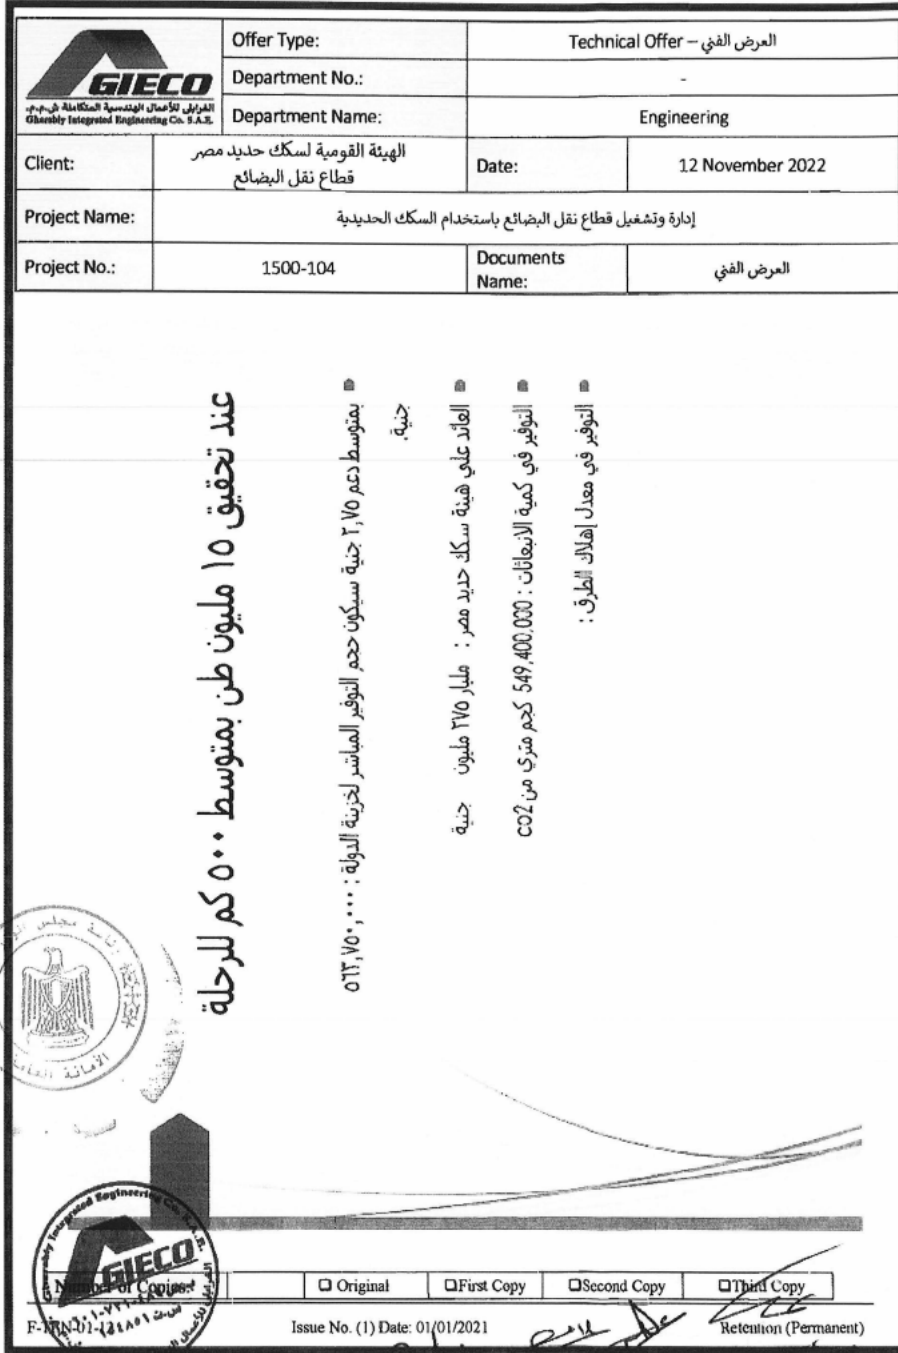 GIECO
الغرابلى للأعمال الهندسية المتكاملة ش.م.م.
Gharably Integrated Engineering Co. S.A.E.
Offer Type: العرض الفني – Technical Offer
Department No.: -
Department Name: Engineering
Client: الهيئة القومية لسكك حديد مصر
قطاع نقل البضائع
Date: 12 November 2022
Project Name: إدارة وتشغيل قطاع نقل البضائع باستخدام السكك الحديدية
Project No.: 1500-104
Documents
Name: العرض الفني
عند تحقيق ١٥ مليون طن بمتوسط ٥٠٠ كم للرحلة
بمتوسط دعم ٢,٧٥ جنية سيكون حجم التوفير المباشر لخزينة الدولة : ٥٦٣,٧٥٠,٠٠٠
جنية.
العائد علي هيئة سكك حديد مصر : مليار ٢٧٥ مليون جنية
التوفير في كمية الانبعاثات : 549,400,000 كجم متري من CO2
التوفير في معدل إهلاك الطرق :
الأمانة العامة
Gharably Integrated Engineering Co. S.A.E.
GIECO
Number of Copies:
☐ Original ☐First Copy ☐Second Copy ☐Third Copy
Issue No. (1) Date: 01/01/2021
Retention (Permanent)